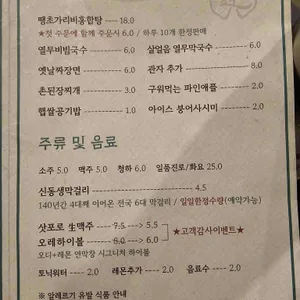 땡초가리비홍합탕 18.0
★첫 주문에 함께 주문시 6.0 / 하루 10개 한정판매
열무비빔국수 6.0 살얼음 열무막국수 6.0
옛날짜장면 6.0 관자 추가 8.0
촌된장찌개 3.0 구워먹는 파인애플 2.0
햅쌀공기밥 1.0 아이스 붕어사시미 2.0
주류 및 음료
소주 5.0 맥주 5.0 청하 6.0 일품진로/화요 25.0
신동생막걸리 4.5
140년간 4대째 이어온 전국 6대 막걸리 / 일일한정수량(예약가능)
삿포로 生맥주 7.5 5.5
오레하이볼 8.0 6.0 ★고객감사이벤트★
오디+레몬 연막창 시그니처 하이볼
토닉워터 2.0 레몬추가 2.0 음료수 2.0
※ 알레르기 유발 식품 안내